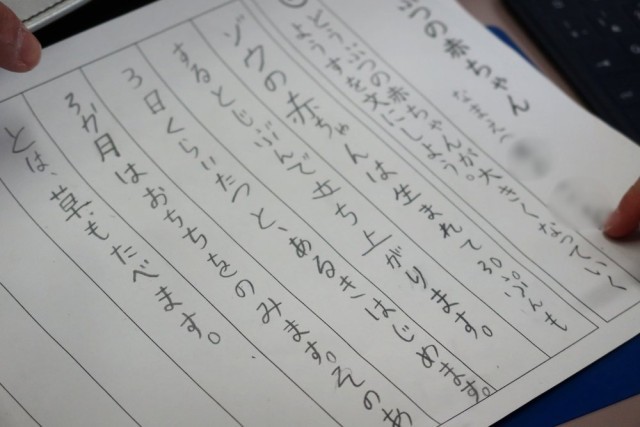 ぶつの赤ちゃん
なまえ
どうぶつの赤ちゃんが大きくなっていく
ようすを文にしよう。
ゾウの赤ちゃんは生まれて30ぷんも
するとじぶんで立ち上がります。
3日くらいたつと、あるきはじめます。
3か月はおちちをのみます。そのあ
とは、草もたべます。